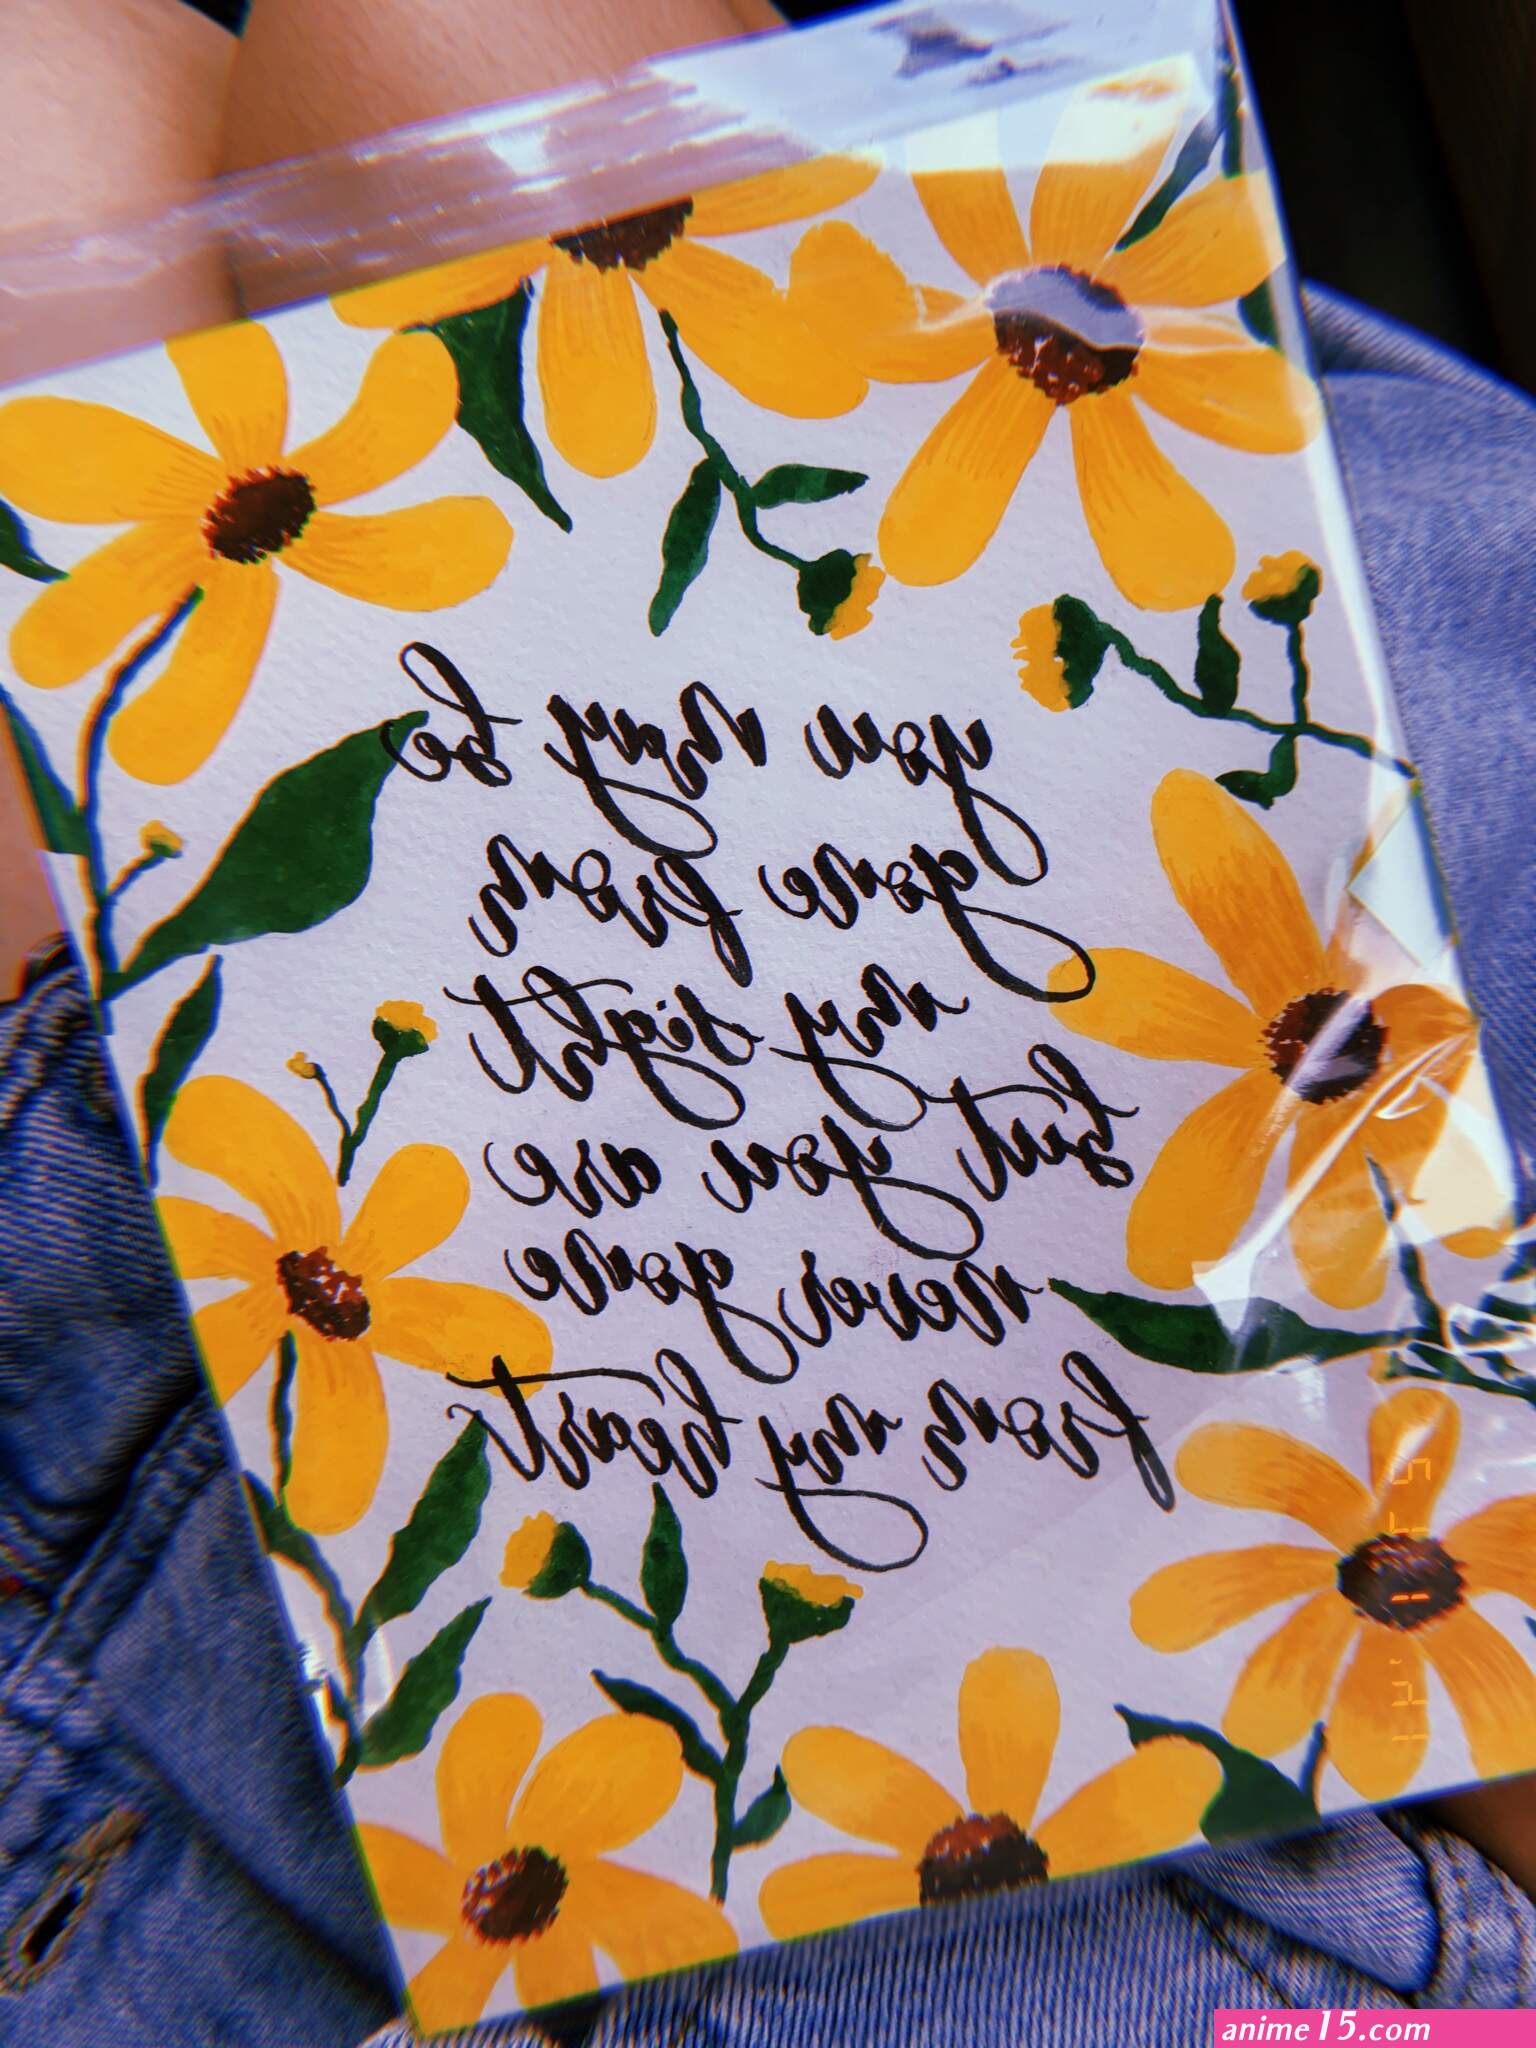 you may be
gone from
my sight
but you are
never gone
from my heart
anime15.com